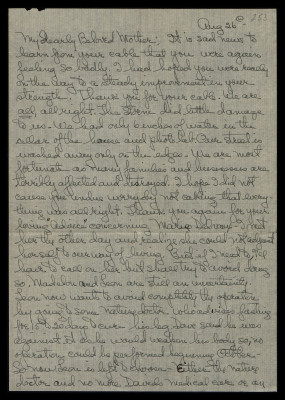 Aug 26th
My dearly Beloved Mother. It is sad news to
learn from your cable that you were again
feeling so badly. I had hoped you were really
on the way to a steady improvement in your
strength. Thank you for your cable. We are
all, all right. The storm did little damage
to us. We had only 6 inches of water in the
cellar of the house and
washed away only on the edges. We are most
fortunate as many families and businesses are
terribly affected and destroyed. I hope I did not
cause you endless worry by not cabling that every-
thing was all right. Thank you again for your
loving "advice" concerning Mario
her the other day and realize she could not adjust
herself to our way of living. But if I need to I'll
have to call on her but shall try to avoid doing
so. and Sean are still an uncertainty.
Sean now wants to avoid completely the operation
by going to some nature doctor who advises fasting
for 15 to 30 days to cure his leg. Dave said he was
against it as he would weaken his body so, no
operation could be performed beginning October.
So now Sean is left to choose - Either the nature
doctor and no more David's medical care or an